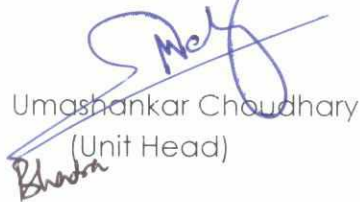 Umashankar Choudhary
(Unit Head)
Bhadra